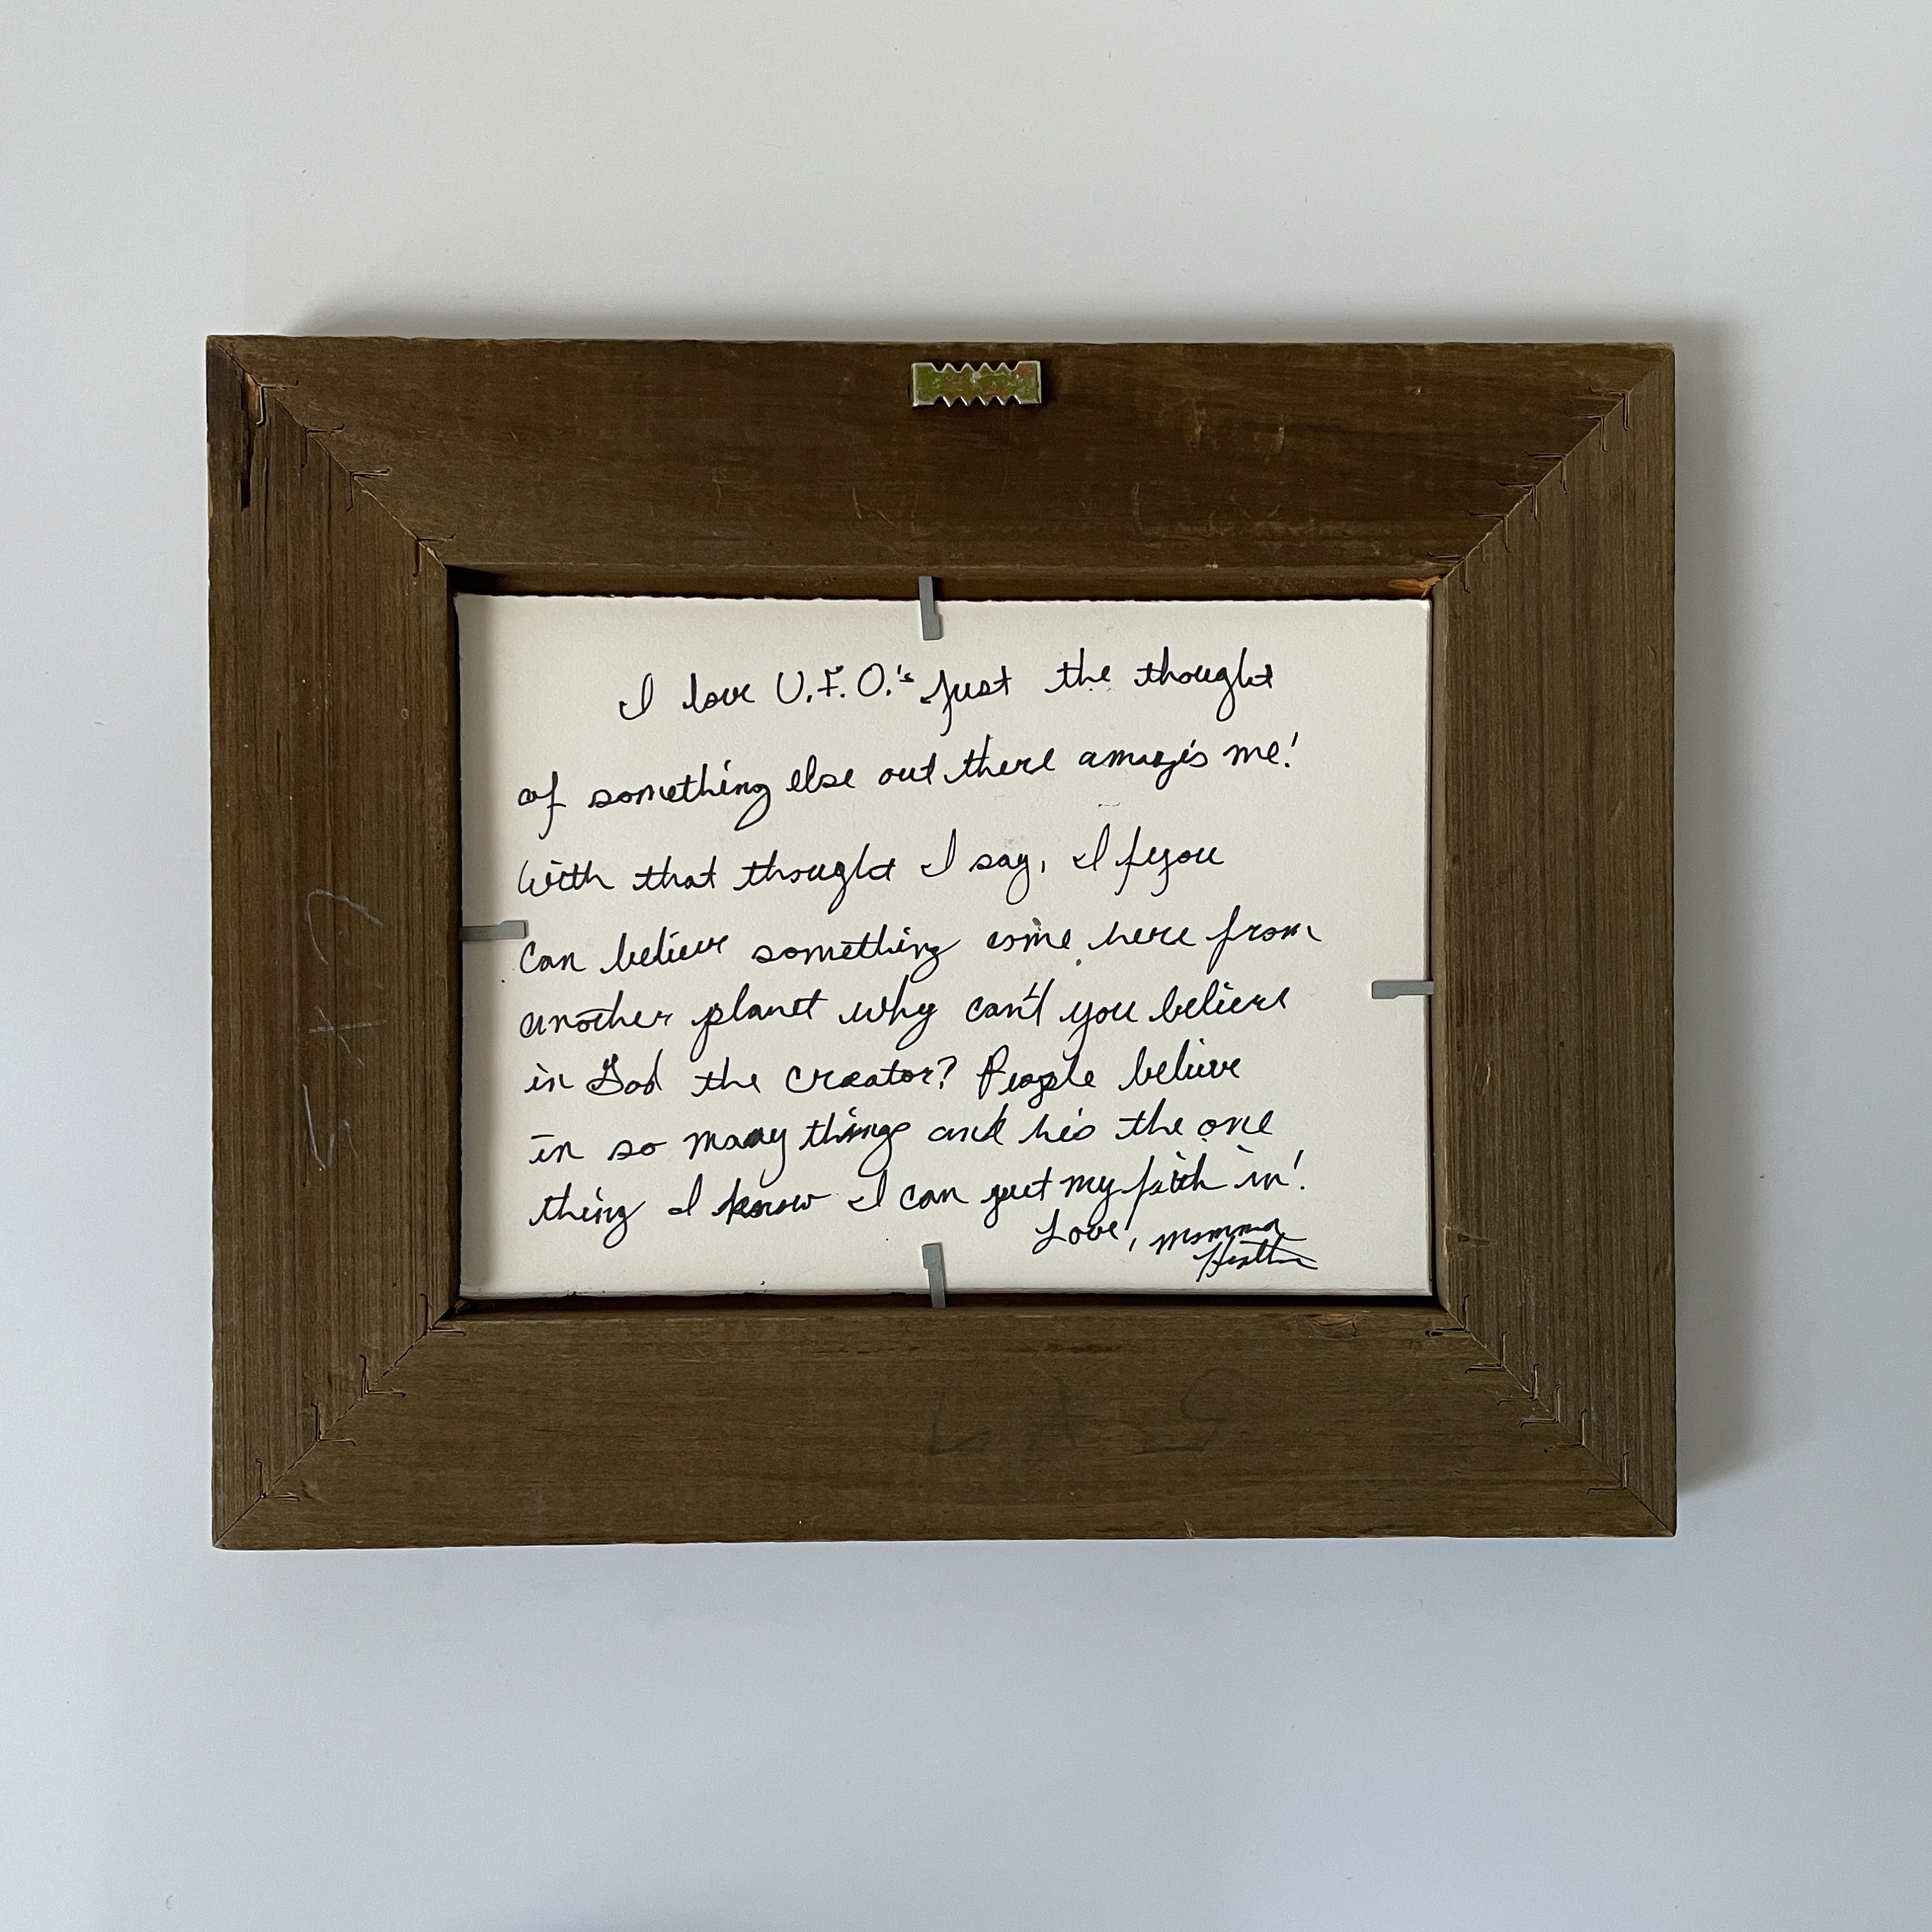 I love U.F.O.'s Just the thought
of something else out there amazes me!
With that thought I say, If you
can believe something come here from
another planet why can't you believe
in God the creator? People believe
in so many things and he's the one
thing I know I can put my faith in!
Love, Momma
Heather
5x7
5x7